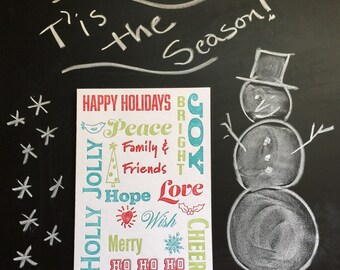 T'is
the
Season!
HAPPY HOLIDAYS
Peace
BRIGHT
JOY
Family &
Friends
HOLLY JOLLY
Hope
Love
Wish
Merry
CHEER
HO HO HO